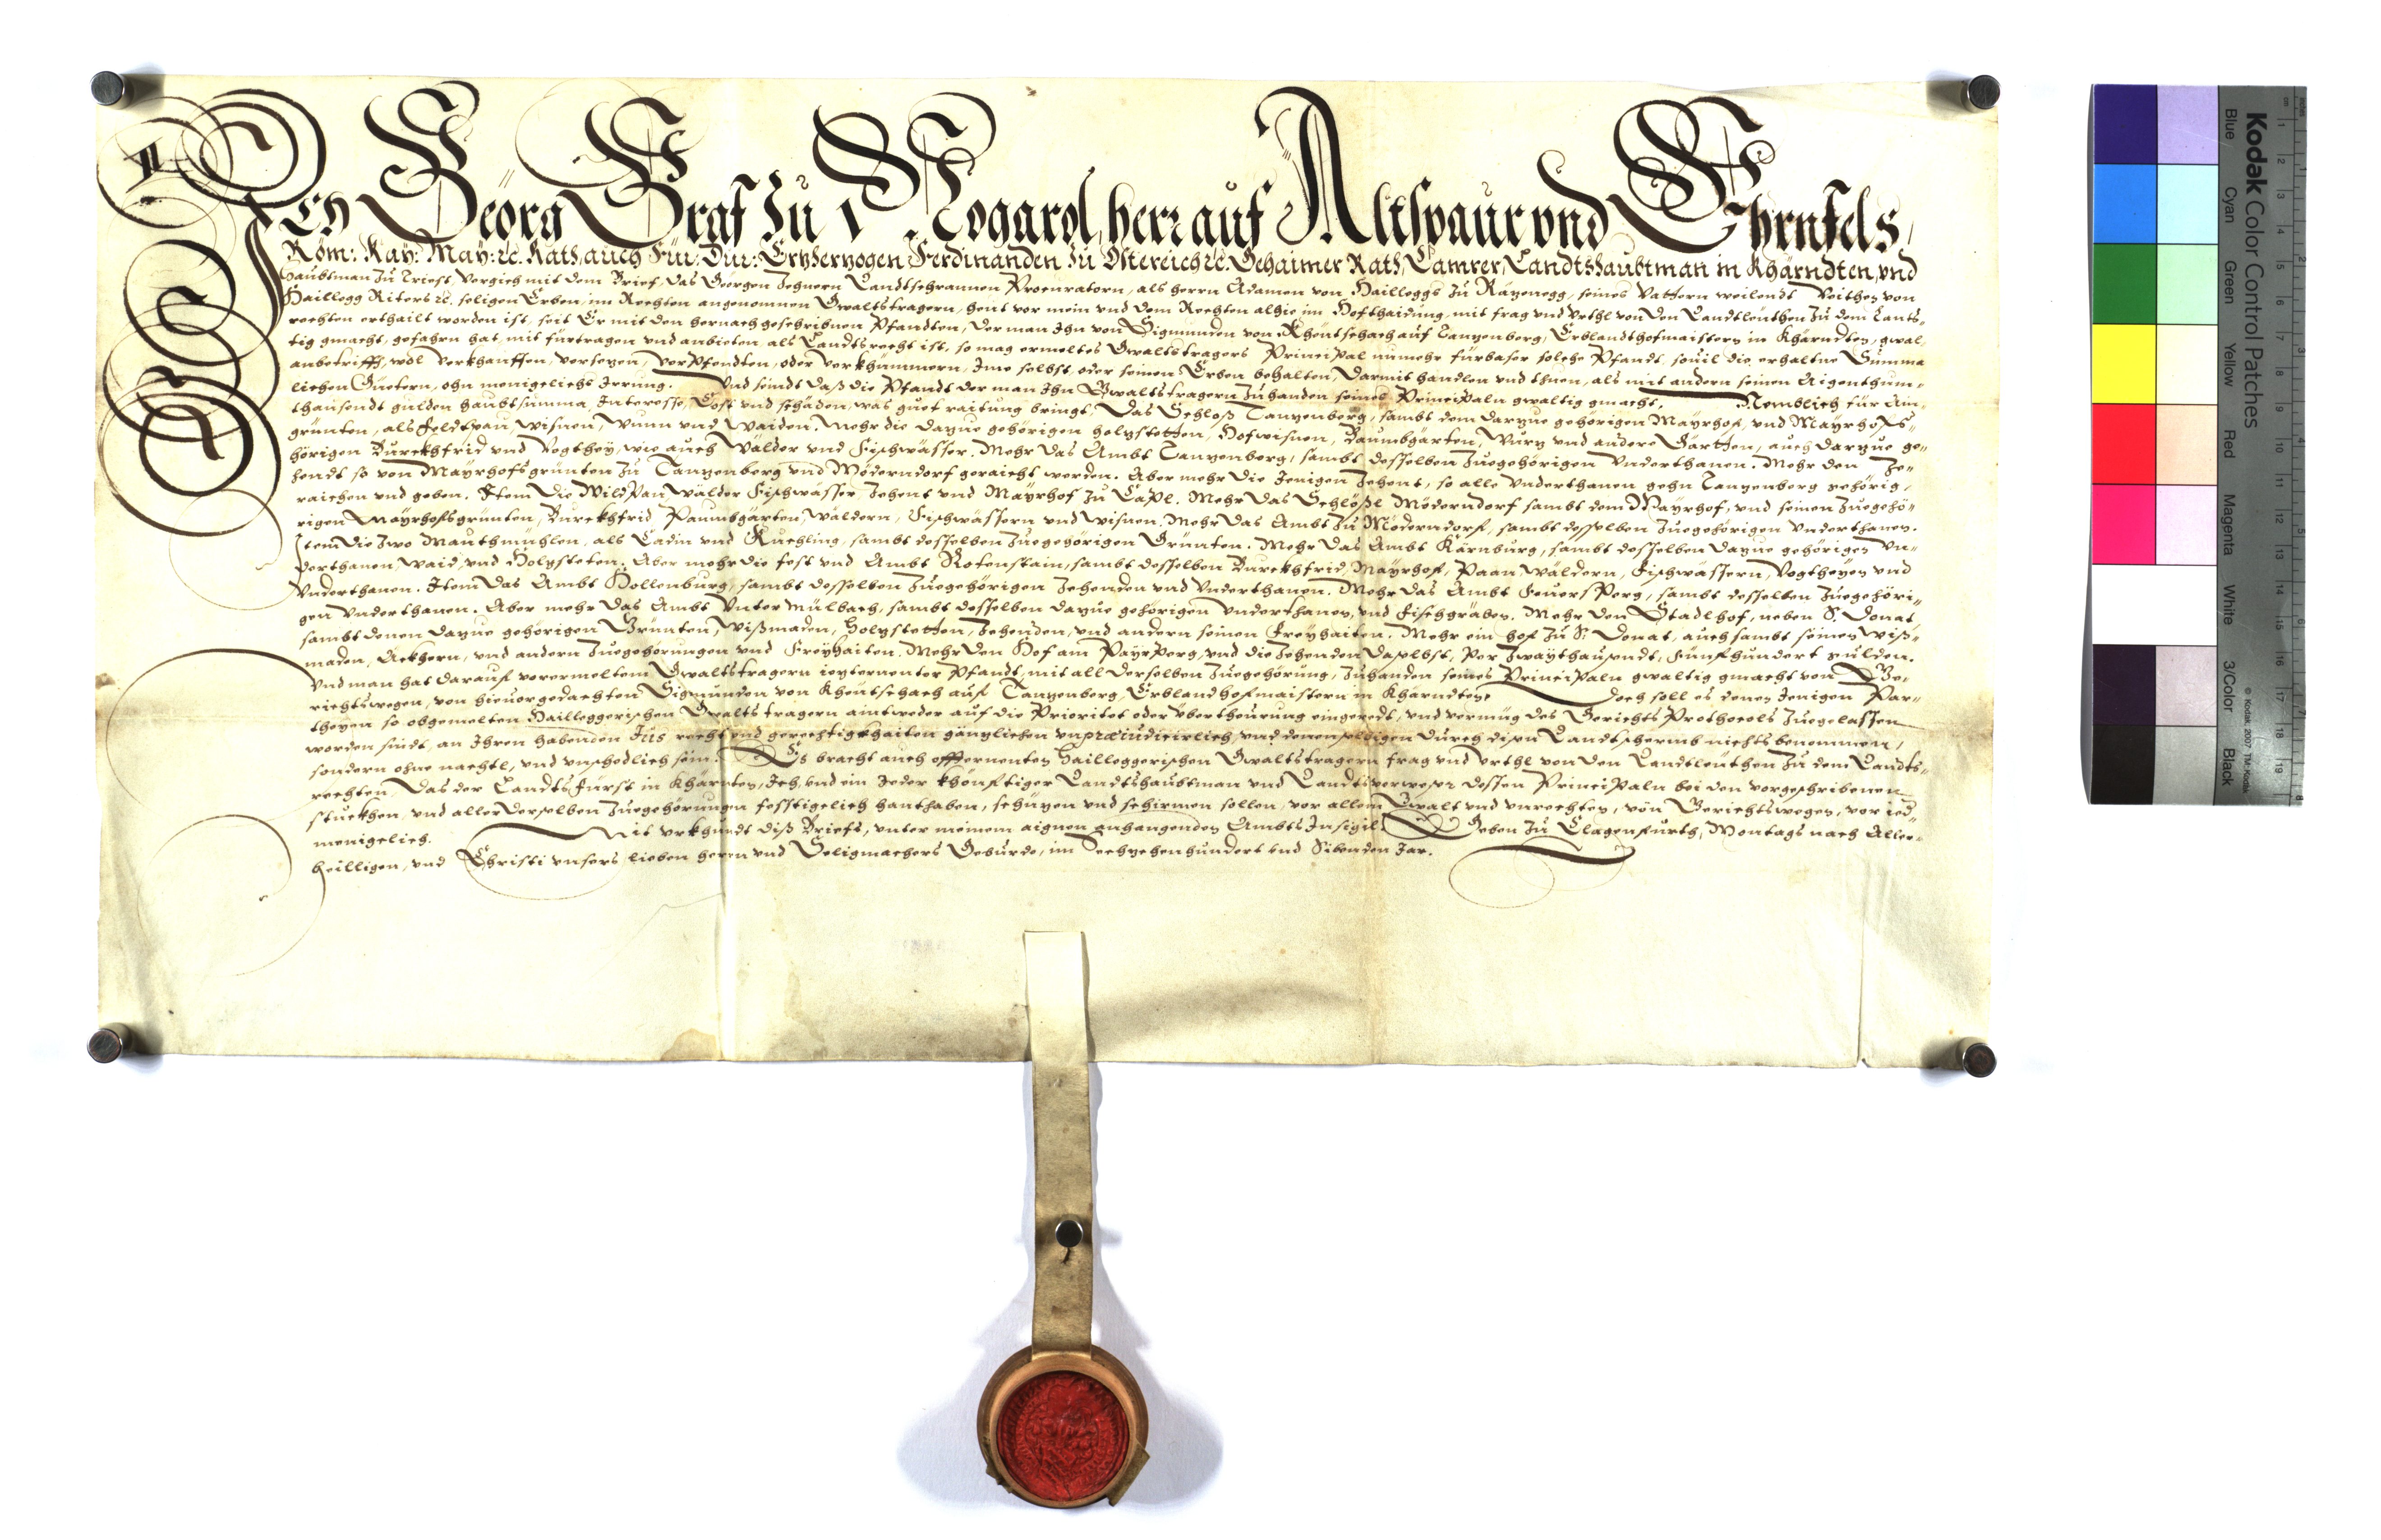 Ich Georg Graf Zu Nogarol, herr auf Altspaur vnd
Röm: Kay: May: ꝛc. Rath, auch Für: Dur: Ertzhertzogen Ferdinanden Zu Ostereich ꝛc. Gehaimer Rath, Camrer, Landtshaubtman in Khärndten, vnd
haubtman Zu Triest, Vergich mit dem Brief, das Georgen Landtschrannen Procuratorn, als herrn Adamen von Hailleggs Zu seines Vattern weilendt Veithen von
Haillegg Riters ꝛc. seligen Erben, im Rechten angenomnen Gwaltstragern, heut vor mein vnd dem Rechten alhie im Hofthaiding, mit frag vnd vrthl von den Landtleuthen Zu dem Lants-
rechten erthailt worden ist, seit Er mit den hernach geschribnen Pfandten, der man Ihn von Sigmunden von Kheutschach auf Tanzenberg, Erblandthofmaistern in Khärndten, gwal-
tig gmacht, gefahrn hat, mit fürtragen vnd anbieten, als Landtsrecht ist, so mag ermeltes Gwaltstragers Principal nunmehr fürbaser solche Pfandt, souil die erhaltne Summa
anbetrifft, wol verkhauffen, versezen, verPfendten, oder verkhümmern, Ime selbst, oder seinen Erben behalten, darmit handlen vnd thuen, als mit andern seinen Aigenthum-
lichen Guetern, ohn menigelichs Irrung. Vnd seindt daß die Pfandt der man Ihn Gwaltstragern Zuhanden seines Principaln gwaltig gmacht. Nemblich für Ain-
thausendt gulden haubtsumma, Interesse, Cost vnd schäden, was guet raitung bringt. Das Schloß Tanzenberg, sambt dem darzue gehörigen Mayrhof, vnd Mayrhofs-
grünten, als Feldtpau, wisnen, Wunn vnd Waiden. Mehr die dazue gehörigen holzstetten, Hofwisnen, Baumbgärten, Wurz vnd andere Gärtten, auch darzue ge-
hörigen Burckhfrid vnd Vogthey, wie auch Wälder vnd Fischwässer. Mehr das Ambt Tanzenberg, sambt desselben Zuegehörigen Vnderthanen. Mehr den Ze-
hendt so von Mayrhofsgrünten Zu Tanzenberg vnd Möderndorf geraicht werden. Aber mehr die Jenigen Zehent, so alle Vnderthanen gehn Tanzenberg gehörig,
raichen vnd geben. Item die Wildpan, Wälder, Fischwässer, Zehent vnd Mayrhof Zu Capl. Mehr das Schlößl Möderndorf sambt dem Mayrhof, vnd seinen Zuegehö-
rigen Mayrhofsgrünten, Burckhfrid, Paumbgärten, Wäldern, Fischwässern vnd Wisnen. Mehr das Ambt Zu Möderndorf, sambt desselben Zuegehörigen Vnderthanen.
Item die Zwo Mauthmühlen, als Ladin vnd Kuchling, sambt desselben Zuegehörigen Grünten. Mehr das Ambt Kärnburg, sambt desselben dazue gehörigen Vn-
derthanen, Waid, vnd Holzsteten. Aber mehr die fest vnd Ambt Rotenstain, sambt desselben Burckhfrid, Mayrhof, Paan, Wäldern, Fischwässern, Vogtheyen vnd
Vnderthanen. Item das Ambt Hollenburg, sambt desselben Zuegehörigen Zehenden vnd Vnderthanen. Mehr das Ambt FeuersPerg, sambt desselben Zuegehöri-
gen Vnderthanen. Aber mehr das Ambt Vnter Mülbach, sambt desselben dazue gehörigen Vnderthanen, vnd Fischgräben. Mehr den Stadlhof, neben S. Donat,
sambt denen dazue gehörigen Grünten, Wißmaden, Holzstetten, Zehenden, vnd andern seinen Freyhaiten. Mehr ein hof Zu S. Donat, auch sambt seinen Wiß-
maden, Ackhern, vnd andern Zuegehörungen vnd Freyhaiten. Mehr den Hof am PayrPerg, vnd die Zehenden daselbst, Per Zwaythausendt, Fünfhundert gulden.
Vnd man hat darauf vorermeltem Gwaltstragern iezternenter Pfandt, mit all derselben Zuegehörung, Zuhanden seines Principaln gwaltig gmacht von Ge-
richtswegen, von hieuorgedachten Sigmunden von Kheutschach auf Tanzenberg, Erblandhofmaistern in Khärndten. Doch soll es denen Jenigen Par-
theyen so obgemelten Hailleggerischen Gwaltstragern aintweder auf die Prioritet oder Vbertheurung eingeredt, vnd vermüg des Gerichts Prothocols Zuegelassen
worden sindt, an Ihren habenden Jus recht vnd gerechtigkhaiten gänzlichen vnpræiudicirlich, vnd denenselbigen durch disen Landtschermb nichts benommen,
sondern ohne nachtl, vnd vnschedlich sein. Es bracht auch offternenten Hailleggerischen Gwaltstragern frag vnd vrthl von den Landtleuthen Zu dem Landts-
rechten, das der Landts Fürst in Khärnten, Ich, vnd ein Jeder khonftiger Landtshaubtman vnd Landtsverweser dessen Principaln bei den vorgeschribenen
stuckhen, vnd aller derselben Zuegehörungen festtigelich hanthaben, schüzen vnd schirmen sollen, vor allem Gwalt vnd vnrechten, von Gerichtswegen, vor ied-
menigelich. Mit vrkhundt diß Briefs, vnter meinem aignen anhangenden Ambts Insigil. Geben Zu Clagenfurth, Montags nach Aller-
heilligen, vnd Christi vnsers lieben herrn vnd Seligmachers Geburde, im Sechzehenhundert vnd Sibenden Jar.
Kodak Color Control Patches
Blue Cyan Green Yellow Red Magenta White 3/Color Black
© Kodak, 2007 TM: Kodak
cm 1 2 3 4 5 6 7 8 9 10 11 12 13 14 15 16 17 18 19